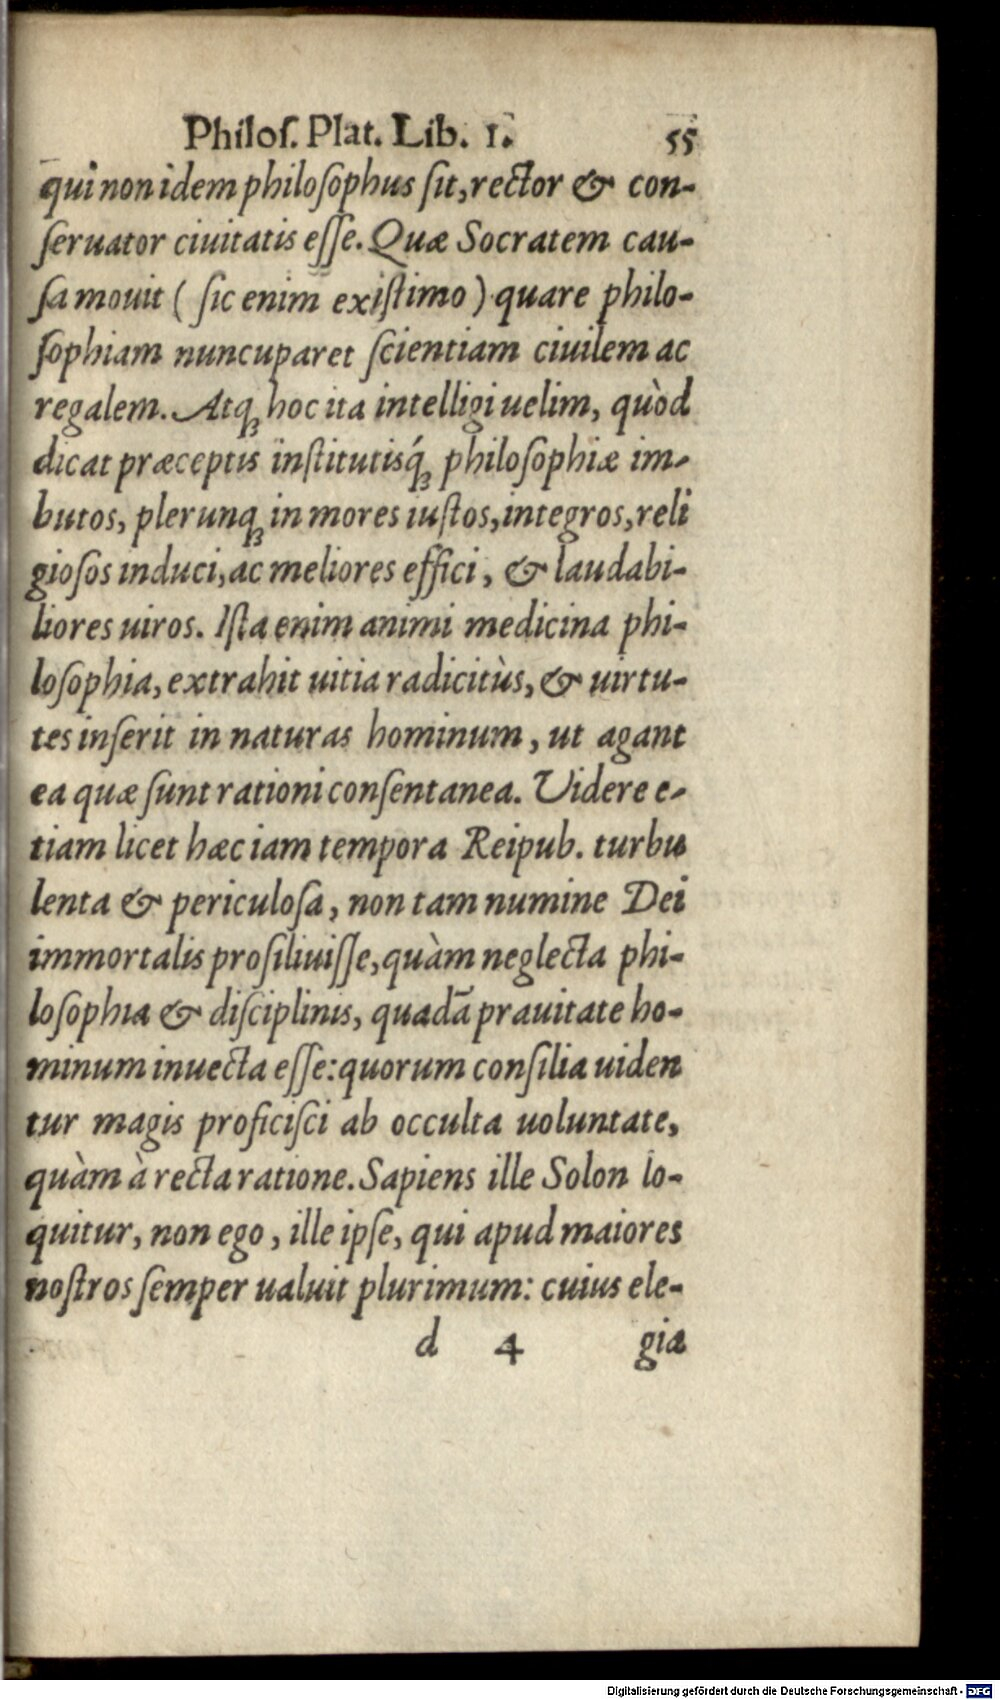 Philoſ. Plat. Lib. 1. 55
qui non idem philoſophus ſit, rector & con-
ſeruator ciuitatis eſſe. Quæ Socratem cau-
ſa mouit ( ſic enim exiſtimo ) quare philo-
ſophiam nuncuparet ſcientiam ciuilem ac
regalem. Atq; hoc ita intelligi uelim, quòd
dicat præceptis inſtitutisq́; philoſophiæ im-
butos, plerunq; in mores iuſtos, integros, reli
gioſos induci, ac meliores effici, & laudabi-
liores uiros. Iſta enim animi medicina phi-
loſophia, extrahit uitia radicitùs, & uirtu-
tes inſerit in naturas hominum, ut agant
ea quæ ſunt rationi conſentanea. Videre e-
tiam licet hæc iam tempora Reipub. turbu
lenta & periculoſa, non tam numine Dei
immortalis proſiliuiſſe, quàm neglecta phi-
loſophia & diſciplinis, quadã prauitate ho-
minum inuecta eſſe: quorum conſilia uiden
tur magis proficiſci ab occulta uoluntate,
quàm à recta ratione. Sapiens ille Solon lo-
quitur, non ego, ille ipſe, qui apud maiores
noſtros ſemper ualuit plurimum: cuius ele-
d 4 giæ
Digitalisierung gefördert durch die Deutsche Forschungsgemeinschaft - DFG